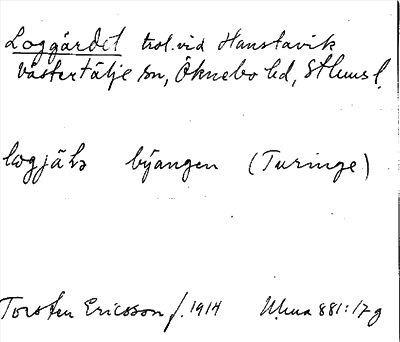 Loggärdet trol. vid Hanstavik
Västertälje sn, Öknebo hd, Sthms l.
byängen (Turinge)
Torsten Ericsson f. 1914 Ulma 881:17 g